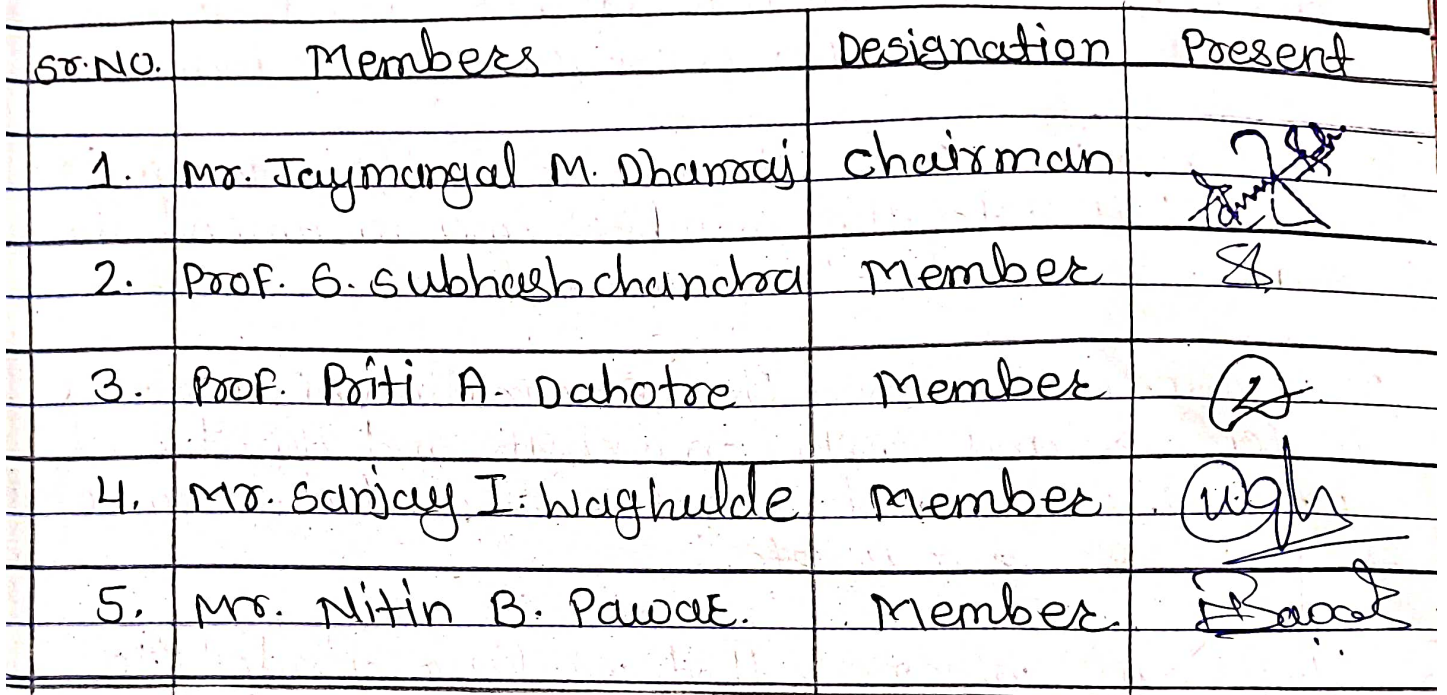 Sr.No. Members Designation Present
1. Mr. Jaymangal M. Dhanraj Chairman
2. Prof. S. Subhash chandra Member
3. Prof. Priti A. Dahotre Member
4. Mr. Sanjay I. Waghulde Member
5. Mr. Nitin B. Pawar. Member